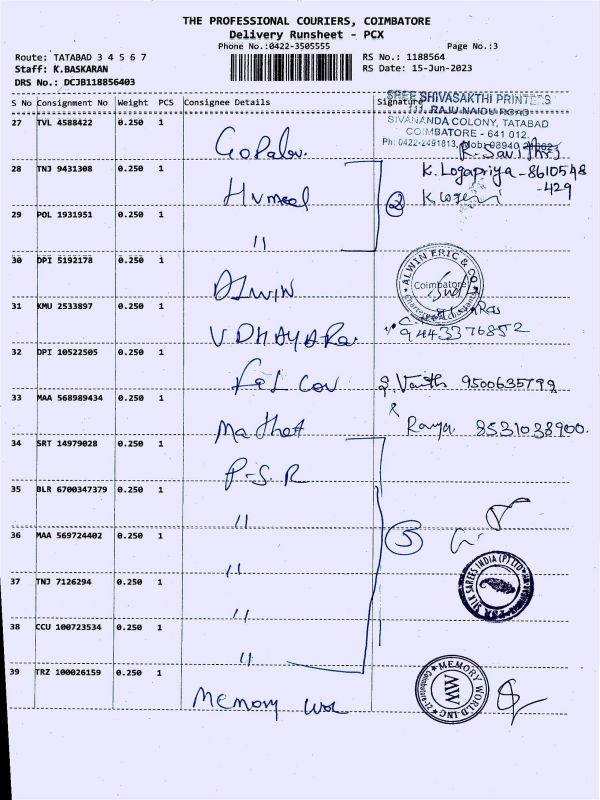 THE PROFESSIONAL COURIERS, COIMBATORE
Delivery Runsheet - PCX
Phone No.:0422-3505555
Page No.:3
Route: TATABAD 3 4 5 6 7
RS No.: 1188564
Staff: K.BASKARAN
RS Date: 15-Jun-2023
DRS No.: DCJB118856403
S No Consignment No Weight PCS Consignee Details Signature
SHREE SHIVASAKTHI PRINTERS
111, RAJU NAIDU ROAD
SIVANANDA COLONY, TATABAD
COIMBATORE - 641 012.
Ph: 0422-2491813, Mob: 98940
27 TVL 4588422 0.250 1
28 TNJ 9431308 0.250 1 K. Logapriya - 8610548
-429
2
29 POL 1931951 0.250 1 "
30 DPI 5192178 0.250 1 ALWIN
ALWIN ERIC & CO
Coimbatore
Chartered Accountants
31 KMU 2533897 0.250 1 9443376852
32 DPI 10522505 0.250 1 9500635799
33 MAA 568989434 0.250 1 Ramya 8531038900.
34 SRT 14979028 0.250 1 P.S.R
35 BLR 6700347379 0.250 1 "
36 MAA 569724402 0.250 1 " 5
37 TNJ 7126294 0.250 1 "
PSR SILK SAREES INDIA (P) LTD
38 CCU 100723534 0.250 1 "
39 TRZ 100026159 0.250 1 Memory Wor
MEMORY WORLD-INC
MW
Coimbatore-12